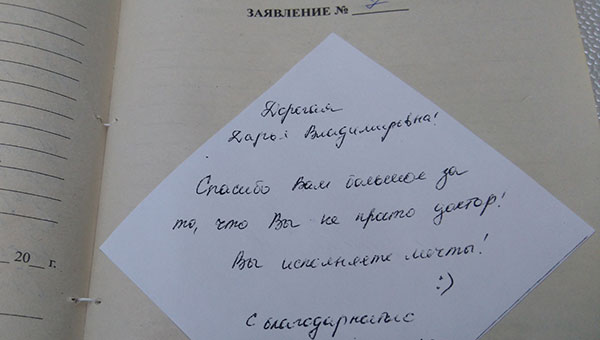 ЗАЯВЛЕНИЕ № 2
Дорогая
Дарья Владимировна!
Спасибо Вам большое за
то, что Вы не просто доктор!
Вы исполняете мечты!
:)
С благодарностью
20 г.